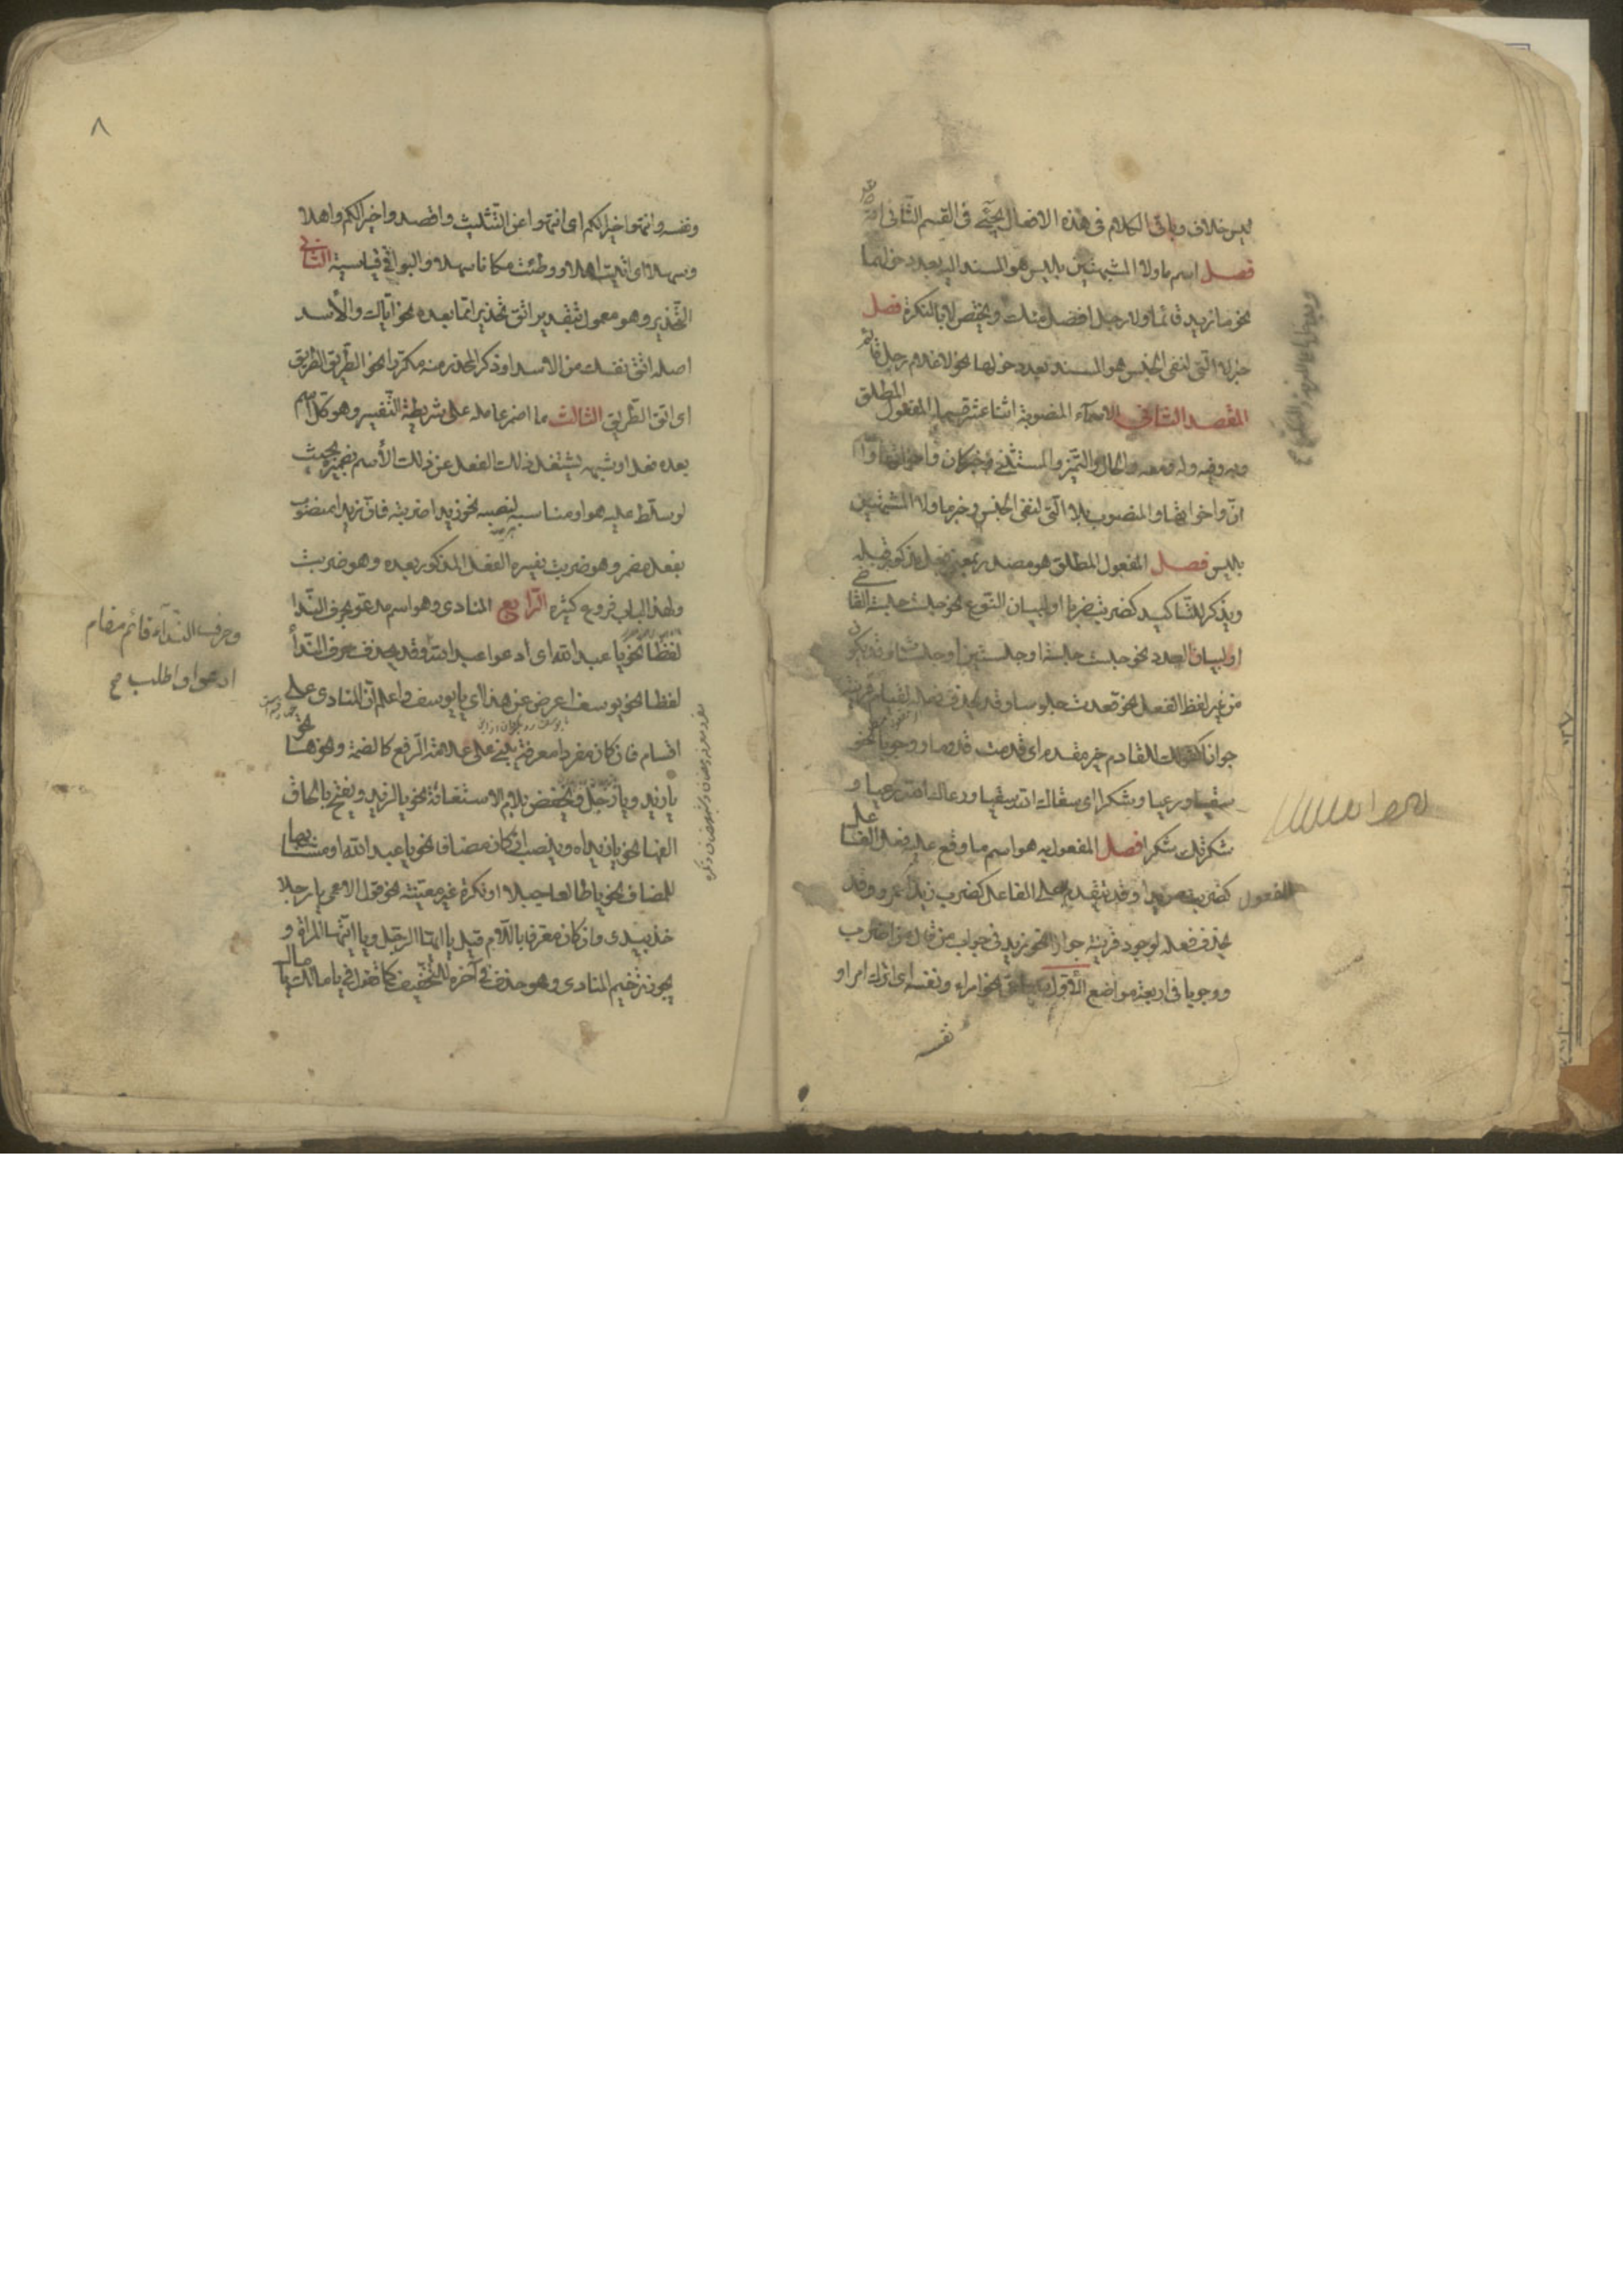 ليس خلاف وباقى الكلام فى هذه الافعال يجئ فى القسم الثانى
فصل اسم ما ولا المشبهتين بليس هو المسند اليه بعد دخولهما
نحو ما زيد قائما ولا رجل افضل منك ويختص لا بالنكرة فصل
خبر لا التى لنفى الجنس هو المسند بعد دخولها نحو لا غلام رجل قائم
المقصد الثانى الاسماء المنصوبة اثنا عشر قسما المفعول المطلق
وبه وفيه وله ومعه والحال والتميز والمستثنى وخبر كان واخواتها
ان واخواتها والمنصوب بلا التى لنفى الجنس وخبر ما ولا المشبهتين
بليس فصل المفعول المطلق هو مصدر بمعنى فعل مذكور قبله
ويذكر للتاكيد كضربت ضربا او لبيان النوع نحو جلست جلسة القا
او لبيان العدد نحو جلست جلسة او جلستين او جلسات وقد يكون
من غير لفظ الفعل نحو قعدت جلوسا وقد يحذف فعله لقيام قرينة
جوازا كقولك للقادم خير مقدم اى قدمت قدوما ووجوبا نحو
سقيا ورعيا وشكرا اى سقاك الله سقيا ورعاك الله رعيا و
شكرتك شكرا فصل المفعول به هو اسم ما وقع عليه فعل الفا
المفعول كضرب زيدا وقد يتقدم على الفاعل كضرب زيدا عمرو وقد
يحذف فعله لوجود قرينة جوازا نحو زيد فى جواب من قال من اضرب
ووجوبا فى اربعة مواضع الاول نحو امراء ونفسه اى اترك امراء و
نفسه
٨
ونفسه وانتهوا خيرا لكم اى انتهوا عن التثليث واقصدوا خيرا لكم واهلا
وسهلا اى اتيت اهلا ووطئت مكانا سهلا والبواقى قياسية الثانى
التحذير وهو معمول بتقدير اتق تحذيرا مما بعده نحو اياك والاسد
اصله اتق نفسك من الاسد او ذكر المحذر منه مكررا نحو الطريق الطريق
اى اتق الطريق الثالث ما اضمر عامله على شريطة التفسير وهو كل اسم
بعده فعل او شبهه يشتغل ذلك الفعل عن ذلك الاسم بضميره بحيث
لو سلط عليه هو او مناسبه لنصبه نحو زيدا ضربته فان زيدا منصوب
بفعل مضمر وهو ضربت يفسره الفعل المذكور بعده وهو ضربت
ولهذا الباب فروع كثيرة الرابع المنادى وهو اسم مدعو بحرف النداء
لفظا نحو يا عبد الله اى ادعوا عبد الله وقد يحذف حرف النداء
لفظا نحو يوسف اعرض عن هذا اى يا يوسف واعلم ان المنادى على
اقسام فان كان مفردا معرفة يبنى على علامة الرفع كالضمة ونحوها نحو
يا زيد ويا رجل ويخفض بلام الاستغاثة نحو يا لزيد ويفتح بالحاق
الفها نحو يا زيداه وينصب ان كان مضافا نحو يا عبد الله او مشابها
للمضاف نحو يا طالعا جبلا او نكرة غير معينة نحو قول الاعمى يا رجلا
خذ بيدى وان كان معرفا باللام قيل يا ايها الرجل ويا ايتها المراة و
يجوز ترخيم المنادى وهو حذف فى آخره للتخفيف كما تقول فى يا مالك يا مال
وحرف النداء قائم مقام
ادعوا واطلب صح